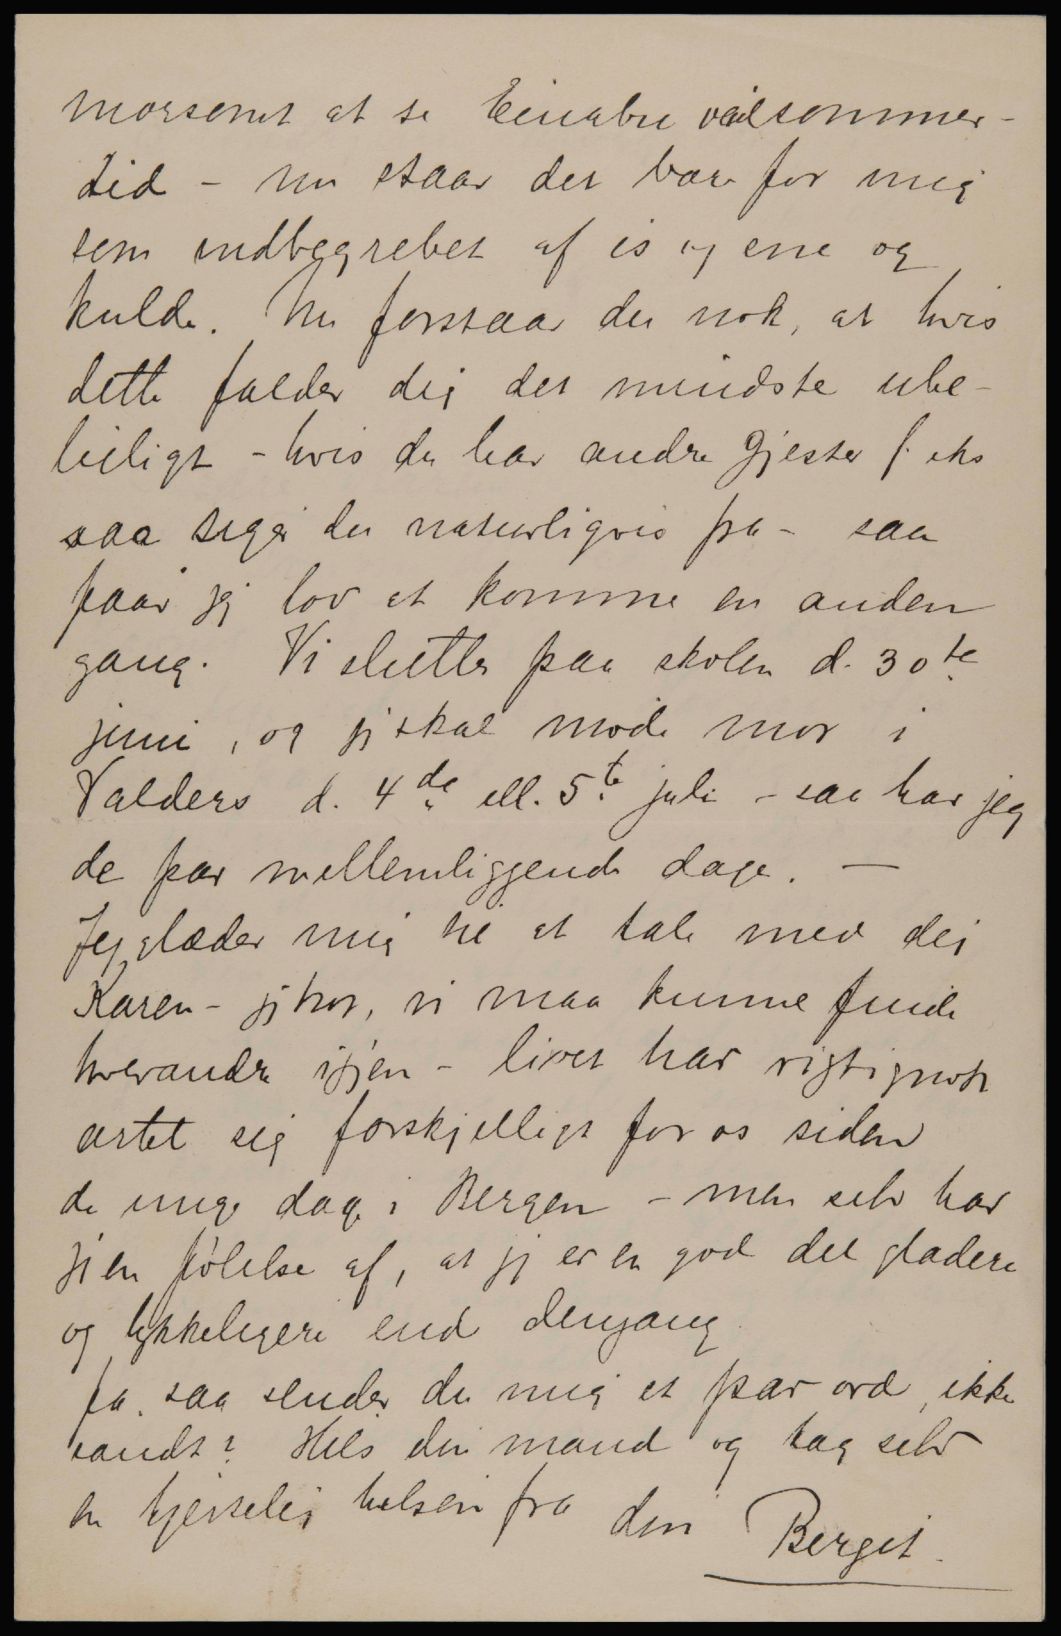 morsomt at se Einabu ved sommer-
tid - nu staar det bare for mig
som indbegrebet af is og sne og
kulde. Nu forstaar du nok, at hvis
dette falder dig det mindste ube-
leiligt - hvis du har andre gjester f. eks
saa siger du naturligvis fra - saa
faar jeg lov at komme en anden
gang. Vi slutter paa skolen d. 30te
juni, og jeg skal møde mor i
Valders d. 4de ell. 5te juli - saa har jeg
de par mellemliggende dage. —
Jeg glæder mig til at tale med dig
Karen - jeg tror, vi maa kunne finde
hverandre igjen - livet har rigtignok
artet sig forskjelligt for os siden
de unge dage i Bergen - men selv har
jeg en følelse af, at jeg er en god del gladere
og lykkeligere end dengang.
Ja, saa sender du mig et par ord, ikke
sandt? Hils din mand og tag selv
en hjertelig hilsen fra din Bergit.